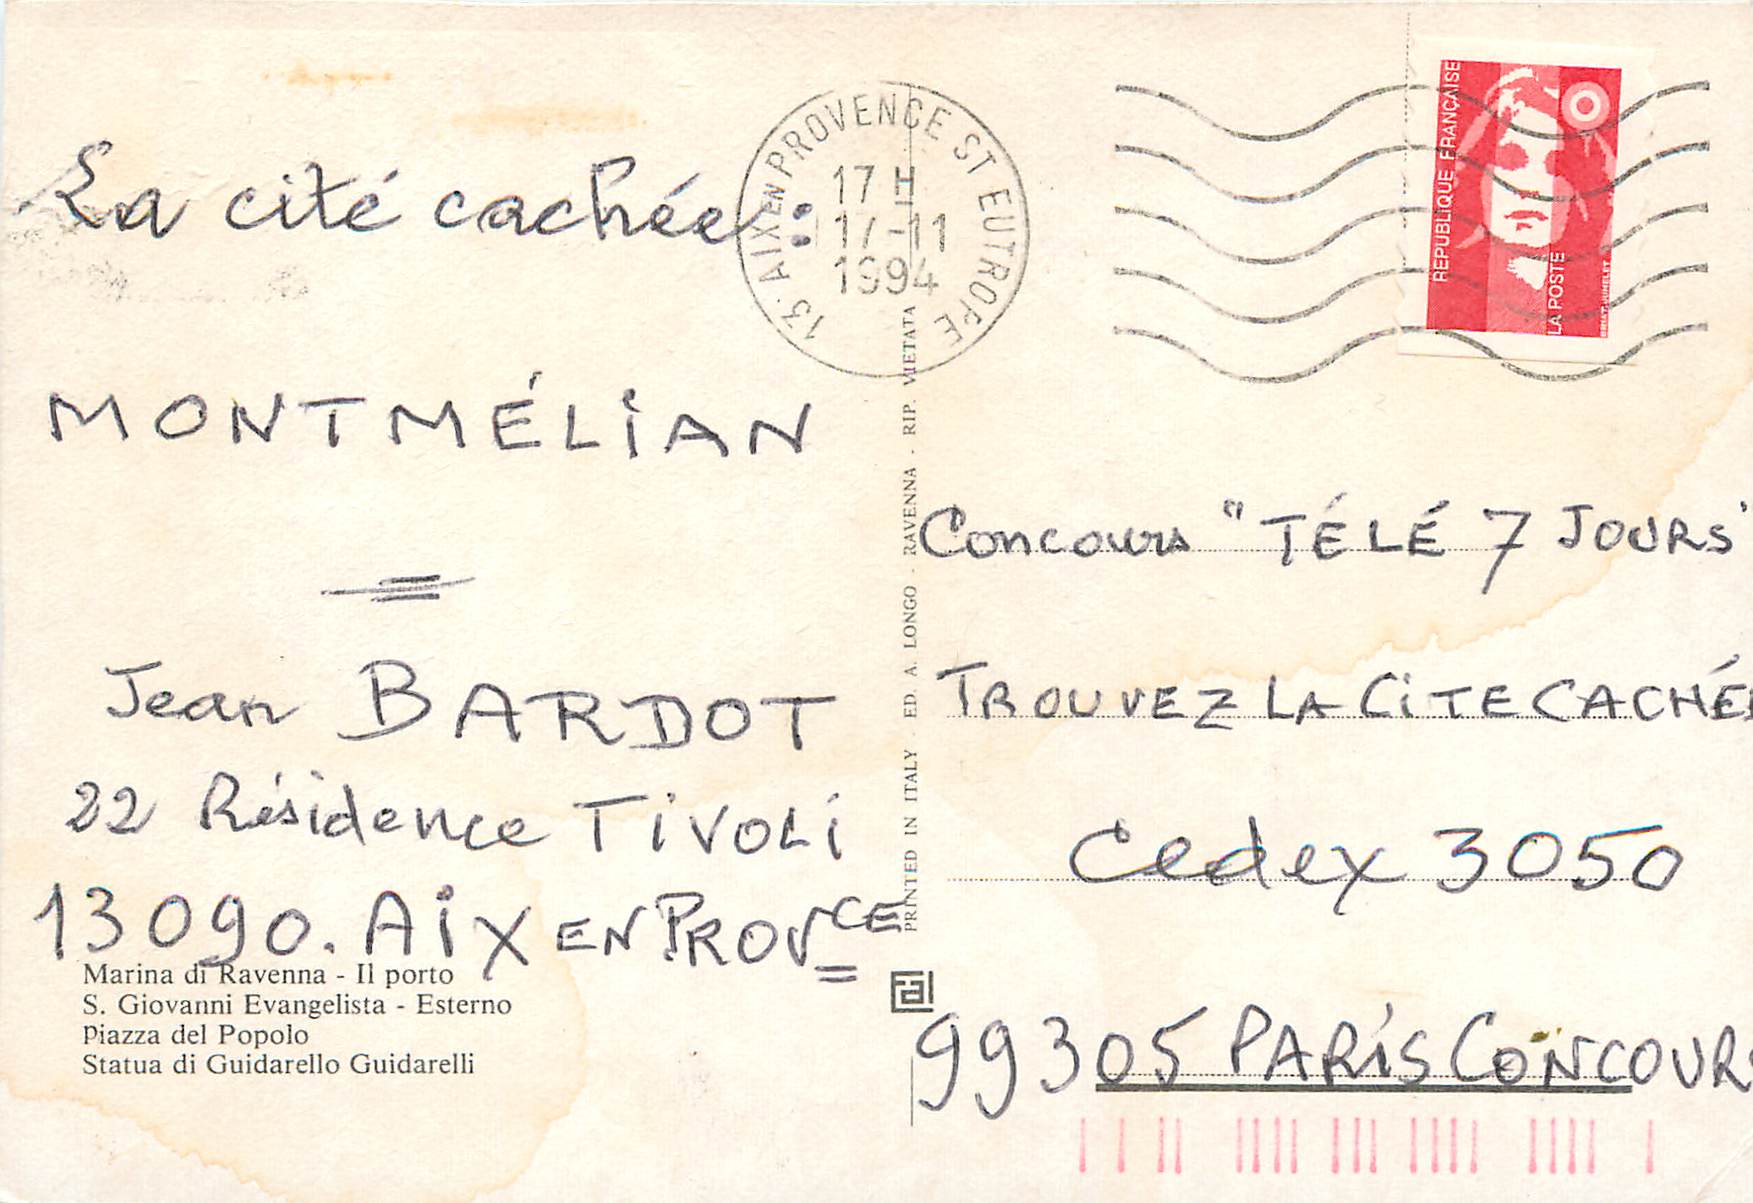 La cité cachée :
MONTMÉLIAN
Jean BARDOT
22 Résidence TiVOLi
13090. AiX EN PROVCE
Marina di Ravenna - Il porto
S. Giovanni Evangelista - Esterno
Piazza del Popolo
Statua di Guidarello Guidarelli
13 · AIX EN PROVENCE ST EUTROPE
17 H
17-11
1994
PRINTED IN ITALY - ED. A. LONGO - RAVENNA - RIP. VIETATA
REPUBLIQUE FRANÇAISE
LA POSTE
BRIAT-JUMELET
Concours "TÉLÉ 7 JOURS"
TROUVEZ LA CiTE CACHÉE
Cedex 3050
99305 PARiS CONCOURS